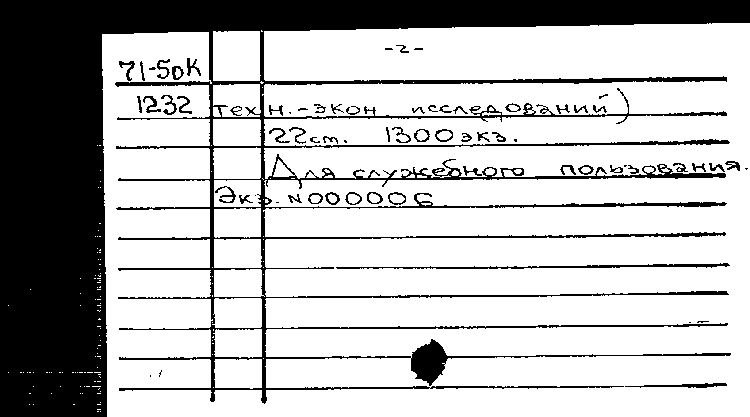 -2-
71-5оК
1232 техн.-экон исследований)
22см. 1300экз.
Для служебного пользования.
Экз. N000006